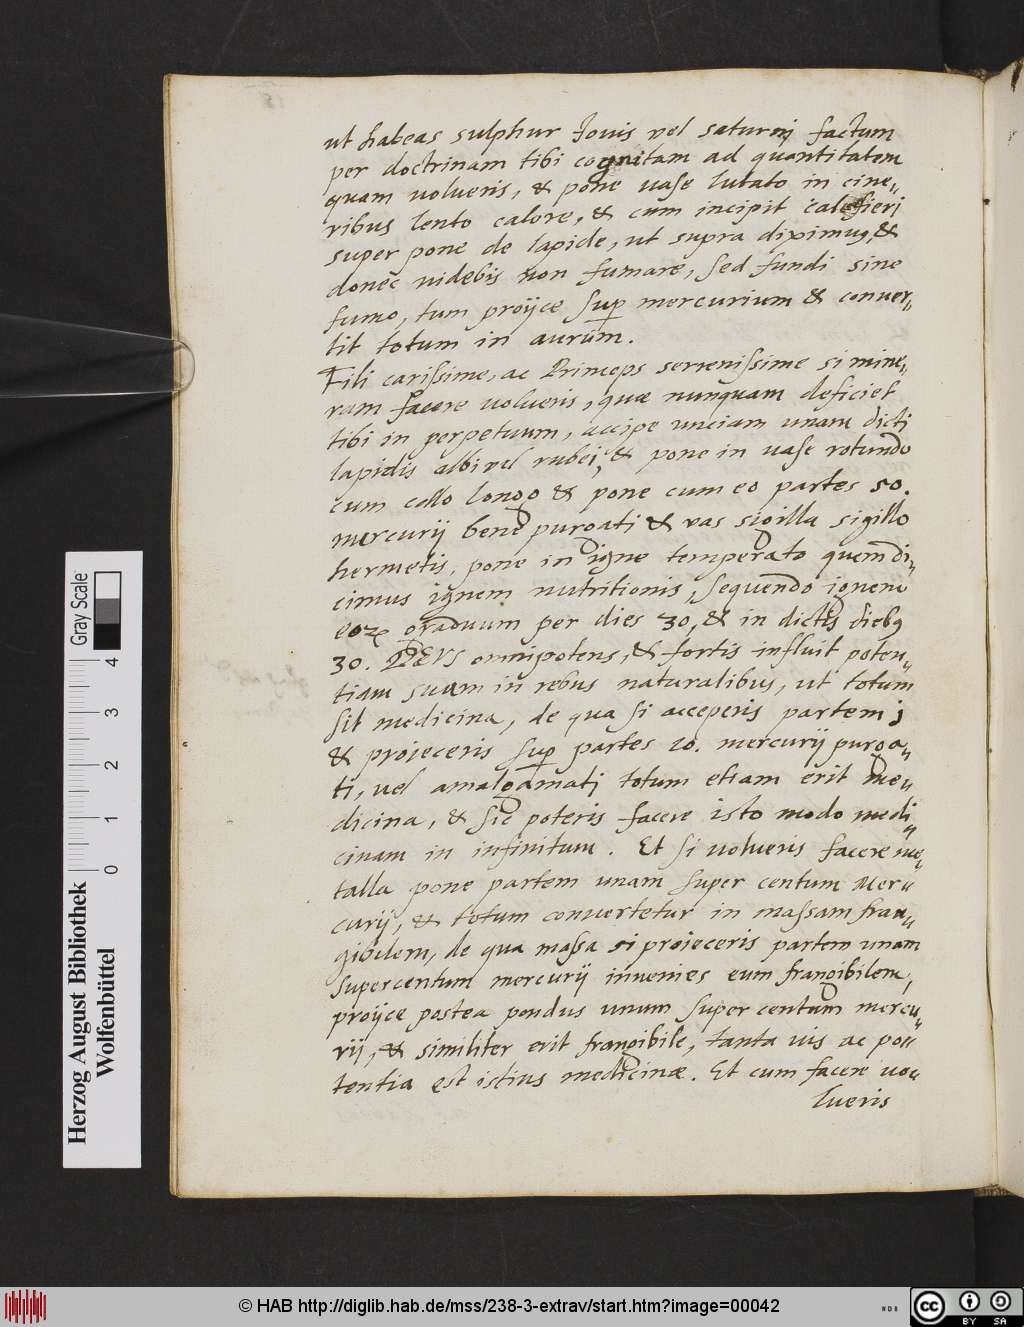 ut habeas sulphur Iovis vel saturnj factum
per doctrinam tibi cognitam ad quantitatem
quam volueris, & pone vase lutato in cine„
ribus lento calore, & cum incipit calefieri
super pone de lapide, ut supra diximus, &
donec videbis non fumare, sed fundi sine
fumo, tum proijce sup mercurium & conver„
tit totum in aurum.
Fili carissime, ac Princeps serrenissime si mine„
ram facere volueris, quæ nunquam deficiet
tibi in perpetuum, accipe unciam unam dicti
lapidis albi vel rubei, & pone in vase rotundo
cum collo longo & pone cum eo partes 50.
mercurij bene purgati & vas sigilla sigillo
hermetis, pone in igne temperato quem di„
cimus ignem nutritionis, sequendo ignem
eoꝝ graduum per dies 30, & in dictis diebꝰ
30. DEVS omnipotens, & fortis influit poten„
tiam suam in rebus naturalibus, ut totum
sit medicina, de qua si acceperis partem j
& projeceris sup partes 10. mercurij purga„
ti, vel amalgamati totum etiam erit me„
dicina, & sic poteris facere isto modo medi„
cinam in infinitum. Et si volueris facere me„
talla pone partem unam super centum Mer„
curij, & totum convertetur in massam fran„
gibilem, de qua massa si projeceris partem unam
super centum mercurij invenies eum frangibilem,
proijce postea pondus unum super centum mercu„
rij, & similiter erit frangibile, tanta vis ac po„
tentia est istius medicinæ. Et cum facere vo„
lueris
Herzog August Bibliothek
Wolfenbüttel
Gray Scale
0 1 2 3 4
© HAB http://diglib.hab.de/mss/238-3-extrav/start.htm?image=00042
cc BY SA